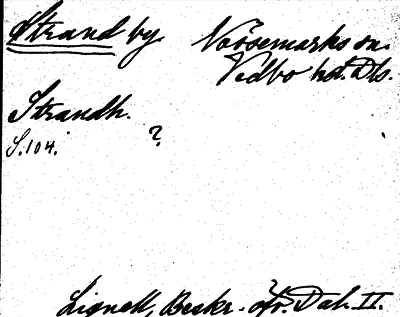 Strand by. Nössemarks sn.
Vedbo hd. Dls.
Strandh.
S. 104. ?
Lignell, Beskr. öfv. Dal. II.